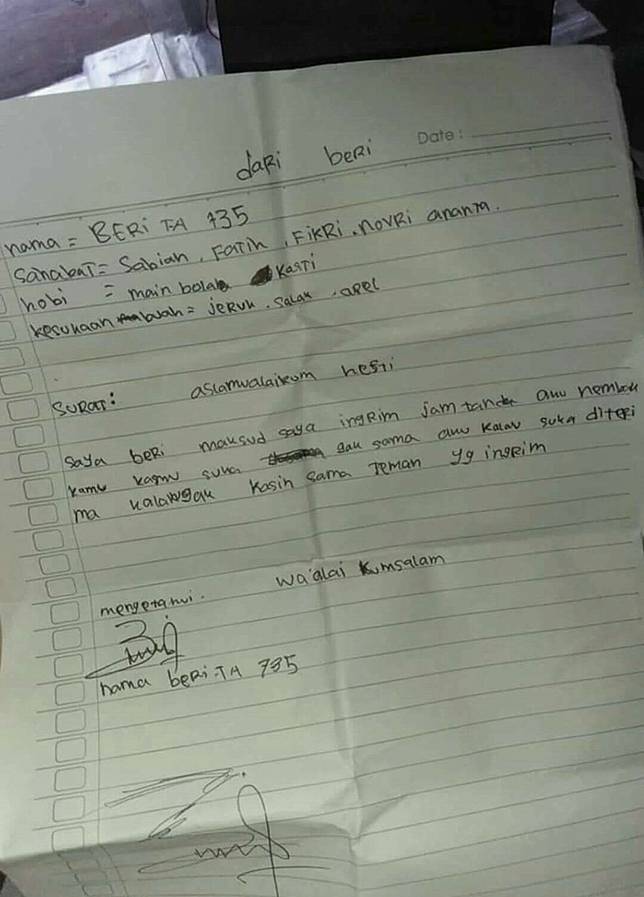 Date :
dari beri
nama = BERi TA 735
Sahabat = Sabiah, Fatih, Fikri, novri ananta.
hobi = main bola kasti
kesukaan buah = jeruk. salak. apel
Surat: aslamualaikum hesti
saya beri maksud saya ingrim jam tandu aku nembak
kamu kamu suka gak sama aku kalau suka diteri
ma kalaugak kasih sama teman yg ingrim
wa'alai kumsalam
mengetahui.
nama beri.TA 735